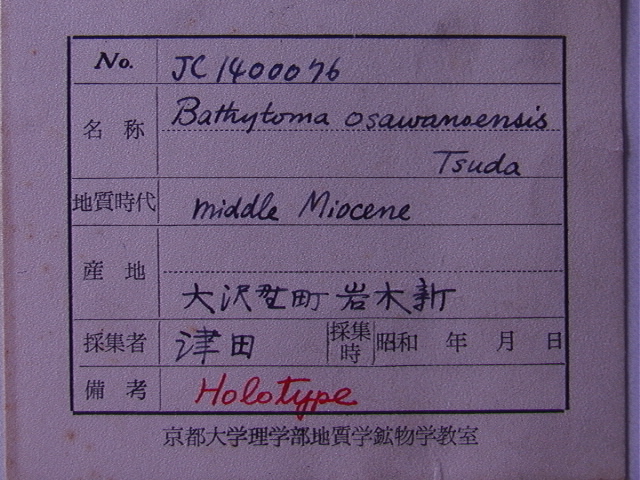 No. JC1400076
名称 Bathytoma osawanoensis
Tsuda
地質時代 middle Miocene
産地
大沢野町岩木新
採集者 津田 採集時 昭和 年 月 日
備考 Holotype
京都大学理学部地質学鉱物学教室